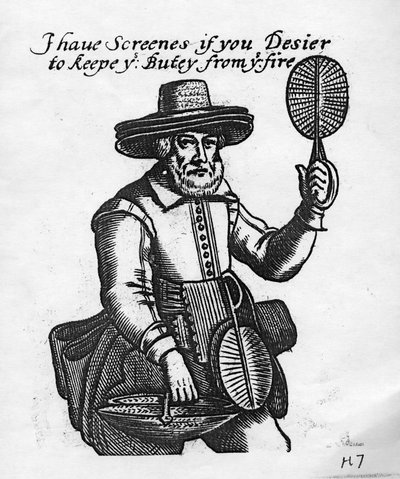 I haue Screenes if you Desier
to keepe yr: Butey from yr: fire
H7